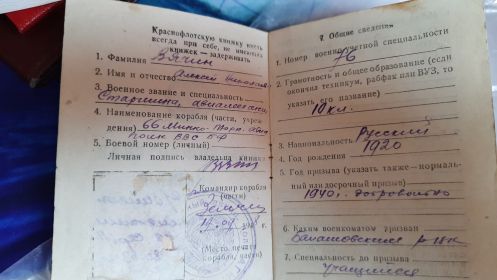 Краснофлотскую книжку иметь
всегда при себе, не имеющих
книжек - задерживать
1. Фамилия Вячин
2. Имя и отчество Алексей
3. Военное звание и специальность
Старшина, авиамеханик
4. Наименование корабля (части, учреж-
дения) 66 Минно-Торп. Авиа
ВВС БФ
5. Боевой номер (личный)
Личная подпись владельца книжки
Командир корабля
(части)
(Место печати
корабля, части)
I. Общие сведения
1. Номер военно-учетной специальности
76
2. Грамотность и общее образование (если
окончил техникум, рабфак или ВУЗ, то
указать его название)
10 кл.
3. Национальность Русский
4. Год рождения 1920
5. Год призыва (указать также—нормаль-
ный или досрочный призыв)
1940г. добровольно
6. Каким военкоматом призван
Балашовский
7. Специальность до призыва
учащийся